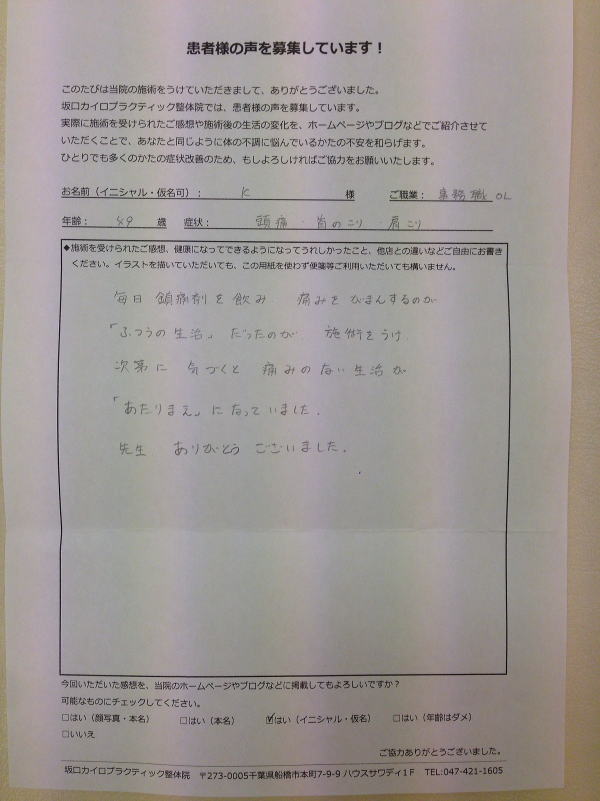 患者様の声を募集しています！
このたびは当院の施術をうけていただきまして、ありがとうございました。
坂口カイロプラクティック整体院では、患者様の声を募集しています。
実際に施術を受けられたご感想や施術後の生活の変化を、ホームページやブログなどでご紹介させて
いただくことで、あなたと同じように体の不調に悩んでいるかたの不安を和らげます。
ひとりでも多くのかたの症状改善のため、もしよろしければご協力をお願いいたします。
お名前（イニシャル・仮名可）： K 様 ご職業： 事務職 OL
年齢： 49 歳 症状： 頭痛・首のこり・肩こり
◆施術を受けられたご感想、健康になってできるようになってうれしかったこと、他店との違いなどご自由にお書き
ください。イラストを描いていただいても、この用紙を使わず便箋等ご利用いただいても構いません。
毎日 鎮痛剤を飲み 痛みをがまんするのが
「ふつうの生活」だったのが 施術をうけ
次第に 気づくと 痛みのない生活が
「あたりまえ」になっていました.
先生 ありがとう ございました.
今回いただいた感想を、当院のホームページやブログなどに掲載してもよろしいですか？
可能なものにチェックしてください。
□はい（顔写真・本名） □はい（本名） ☑はい（イニシャル・仮名） □はい（年齢はダメ）
□いいえ
ご協力ありがとうございました。
坂口カイロプラクティック整体院 〒273-0005千葉県船橋市本町7-9-9 ハウスサワディ1F TEL:047-421-1605